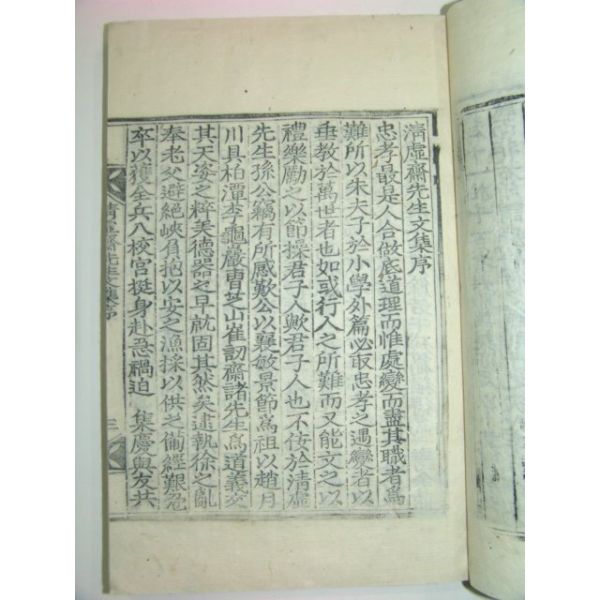 清虛齋先生文集序
忠孝最是人合做底道理而惟處變而盡其職者爲
難所以朱夫子於小學外篇必取忠孝之遇變者以
垂教於萬世者也如或行人之所難而又能文之以
禮樂勵之以節操君子人歟君子人也不侫於淸虛
先生孫公竊有所感歎公以襄敏景節爲祖以趙月
川具柏潭李龜巖曺芝山崔訒齋諸先生爲道義交
其天姿之粹美德器之早就固其然矣逮執徐之亂
奉老父避絶峽負抱以安之漁採以供之備經艱危
卒以獲全兵八校宮挺身赴急禍迫 集慶與友共
清虛齋先生文集序 三